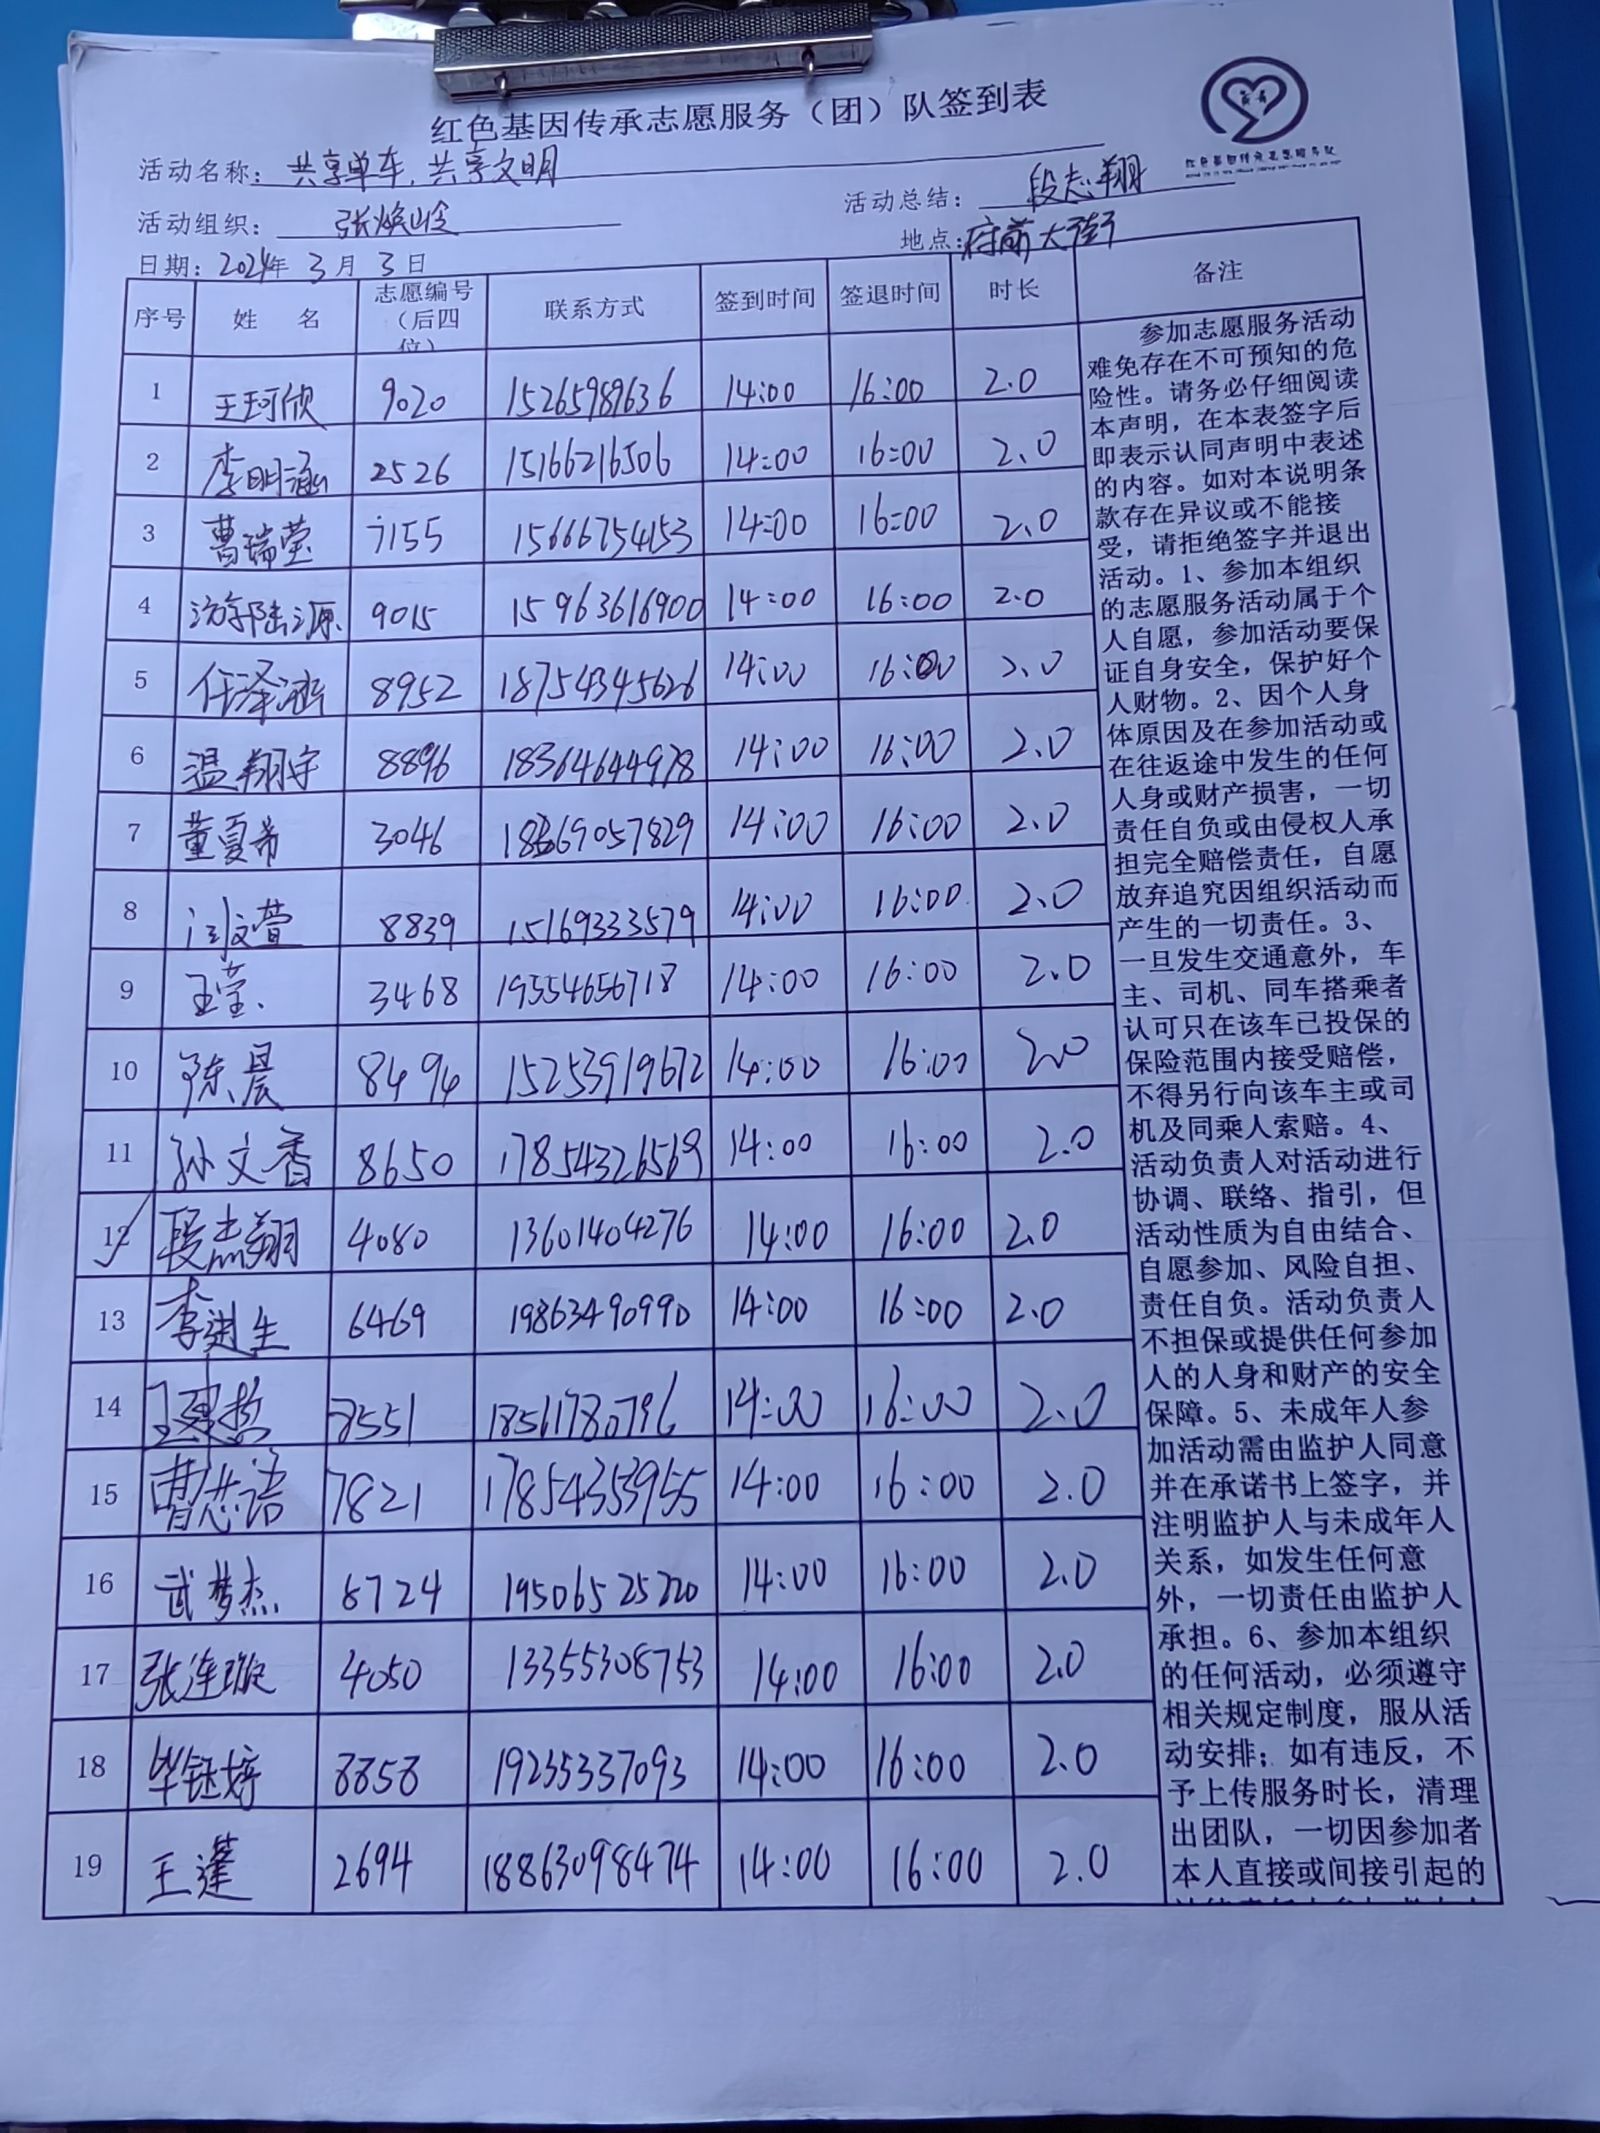 红色基因传承志愿服务（团）队签到表
活动名称：共享单车，共享文明
活动组织：张焕
活动总结：段志翔
日期：2024年 3月 3日
地点：府前大街
序号 姓 名 志愿编号（后四位） 联系方式 签到时间 签退时间 时长 备注
1 王珂欣 9020 15265989636 14:00 16:00 2.0
2 李明涵 2526 15166216506 14:00 16:00 2.0
3 曹瑞莹 7155 15666754153 14:00 16:00 2.0
4 源 9015 15963616900 14:00 16:00 2.0
5 任泽涵 8952 18754345626 14:00 16:00 2.0
6 温翔宇 8896 18364644978 14:00 16:00 2.0
7 董夏希 3046 18669057829 14:00 16:00 2.0
8 文萱 8839 15169333579 14:00 16:00 2.0
9 王莹 3468 19554656718 14:00 16:00 2.0
10 陈晨 8494 15253919672 14:00 16:00 2.0
11 孙文香 8650 17854326569 14:00 16:00 2.0
12 段志翔 4080 13601404276 14:00 16:00 2.0
13 李进生 6469 19863490990 14:00 16:00 2.0
14 王建哲 8551 18561780796 14:00 16:00 2.0
15 曹志语 7821 17854353955 14:00 16:00 2.0
16 武梦杰 8724 19506525220 14:00 16:00 2.0
17 张连璇 4050 13355308753 14:00 16:00 2.0
18 毕钰婷 8858 19235337093 14:00 16:00 2.0
19 王蓬 2694 18863098474 14:00 16:00 2.0
参加志愿服务活动
难免存在不可预知的危
险性。请务必仔细阅读
本声明，在本表签字后
即表示认同声明中表述
的内容。如对本说明条
款存在异议或不能接
受，请拒绝签字并退出
活动。1、参加本组织
的志愿服务活动属于个
人自愿，参加活动要保
证自身安全，保护好个
人财物。2、因个人身
体原因及在参加活动或
在往返途中发生的任何
人身或财产损害，一切
责任自负或由侵权人承
担完全赔偿责任，自愿
放弃追究因组织活动而
产生的一切责任。3、
一旦发生交通意外，车
主、司机、同车搭乘者
认可只在该车已投保的
保险范围内接受赔偿，
不得另行向该车主或司
机及同乘人索赔。4、
活动负责人对活动进行
协调、联络、指引，但
活动性质为自由结合、
自愿参加、风险自担、
责任自负。活动负责人
不担保或提供任何参加
人的人身和财产的安全
保障。5、未成年人参
加活动需由监护人同意
并在承诺书上签字，并
注明监护人与未成年人
关系，如发生任何意
外，一切责任由监护人
承担。6、参加本组织
的任何活动，必须遵守
相关规定制度，服从活
动安排；如有违反，不
予上传服务时长，清理
出团队，一切因参加者
本人直接或间接引起的